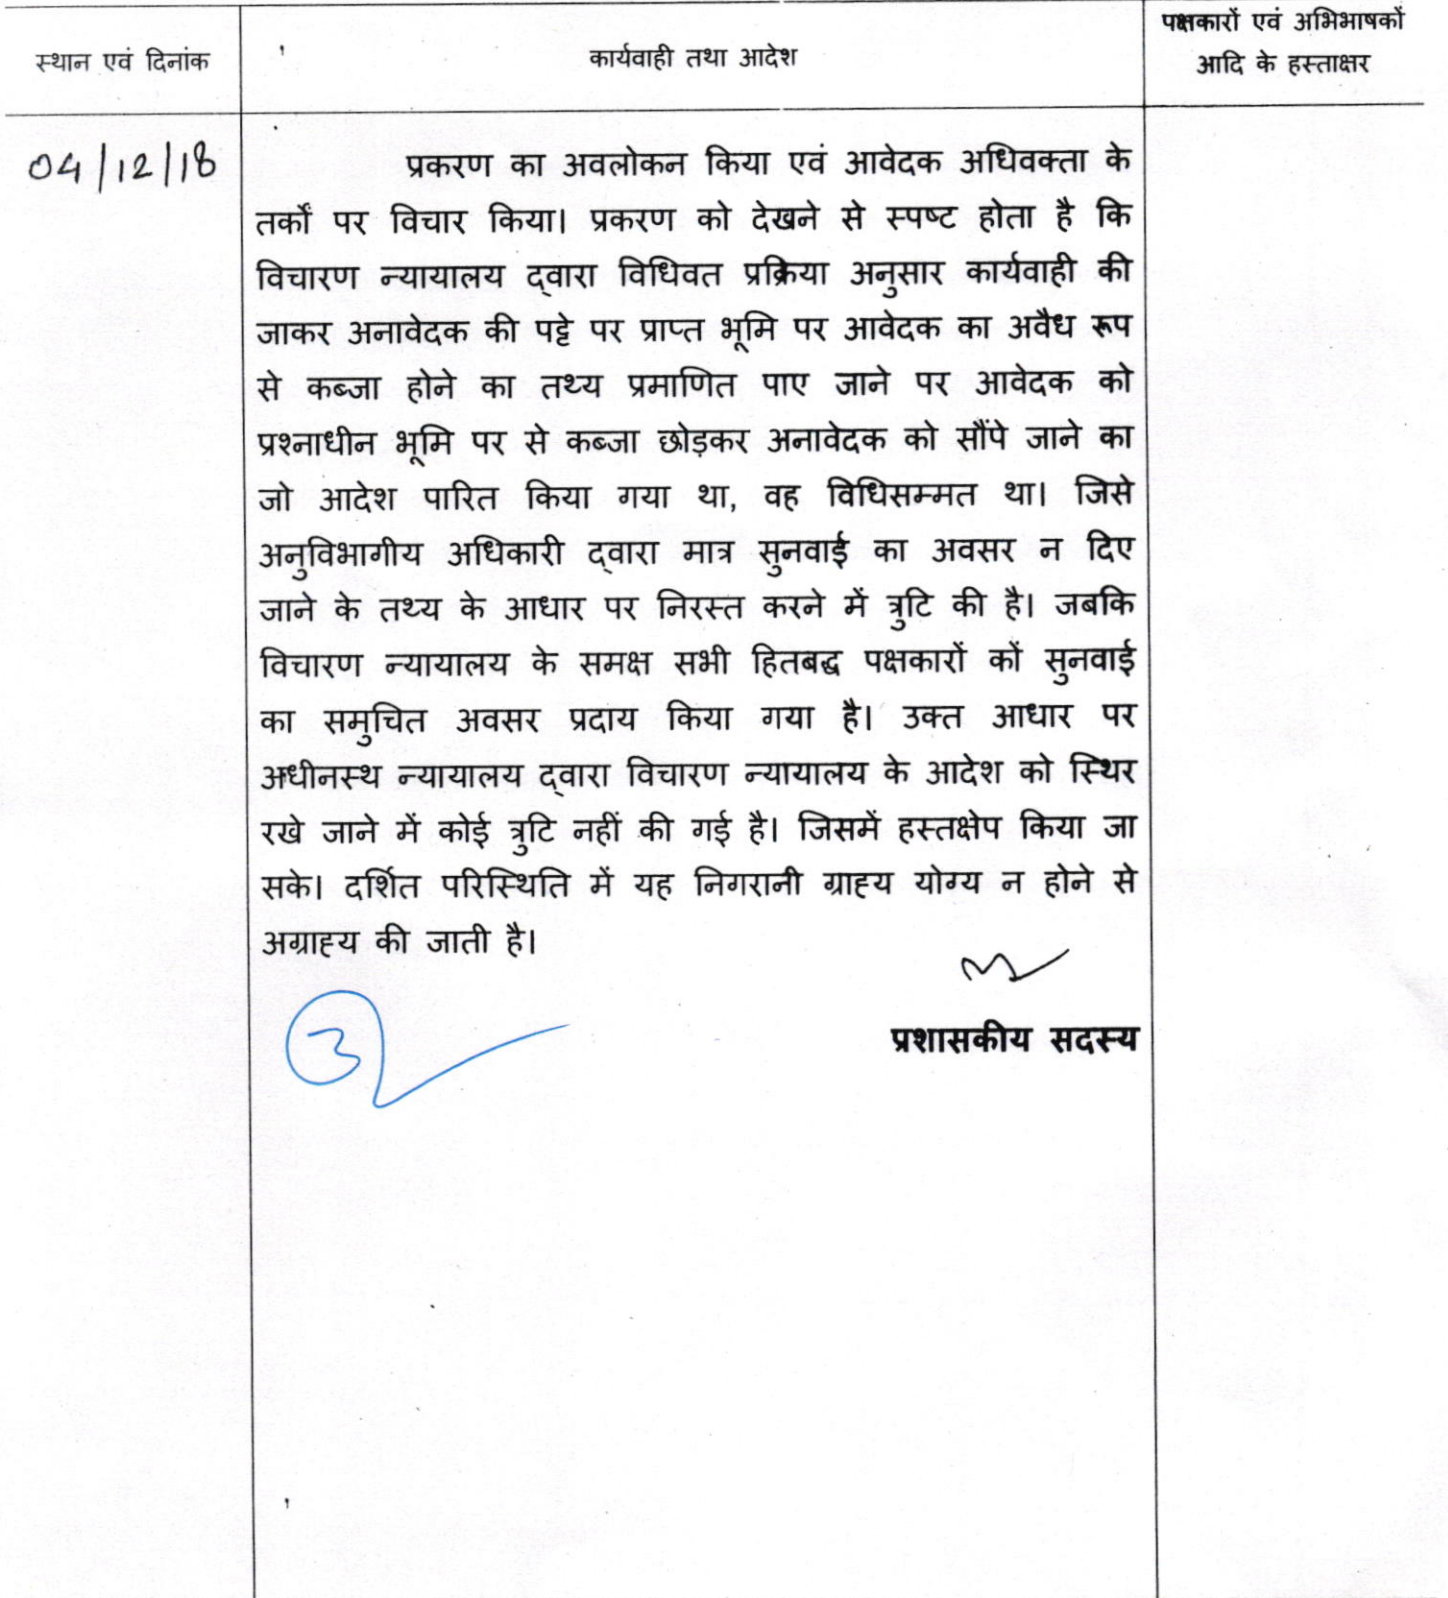 स्थान एवं दिनांक
कार्यवाही तथा आदेश
पक्षकारों एवं अभिभाषकों
आदि के हस्ताक्षर
04/12/18
प्रकरण का अवलोकन किया एवं आवेदक अधिवक्ता के
तर्कों पर विचार किया। प्रकरण को देखने से स्पष्ट होता है कि
विचारण न्यायालय द्वारा विधिवत प्रक्रिया अनुसार कार्यवाही की
जाकर अनावेदक की पट्टे पर प्राप्त भूमि पर आवेदक का अवैध रूप
से कब्जा होने का तथ्य प्रमाणित पाए जाने पर आवेदक को
प्रश्नाधीन भूमि पर से कब्जा छोड़कर अनावेदक को सौंपे जाने का
जो आदेश पारित किया गया था, वह विधिसम्मत था। जिसे
अनुविभागीय अधिकारी द्वारा मात्र सुनवाई का अवसर न दिए
जाने के तथ्य के आधार पर निरस्त करने में त्रुटि की है। जबकि
विचारण न्यायालय के समक्ष सभी हितबद्ध पक्षकारों कों सुनवाई
का समुचित अवसर प्रदाय किया गया है। उक्त आधार पर
अधीनस्थ न्यायालय द्वारा विचारण न्यायालय के आदेश को स्थिर
रखे जाने में कोई त्रुटि नहीं की गई है। जिसमें हस्तक्षेप किया जा
सके। दर्शित परिस्थिति में यह निगरानी ग्राह्य योग्य न होने से
अग्राह्य की जाती है।
प्रशासकीय सदस्य